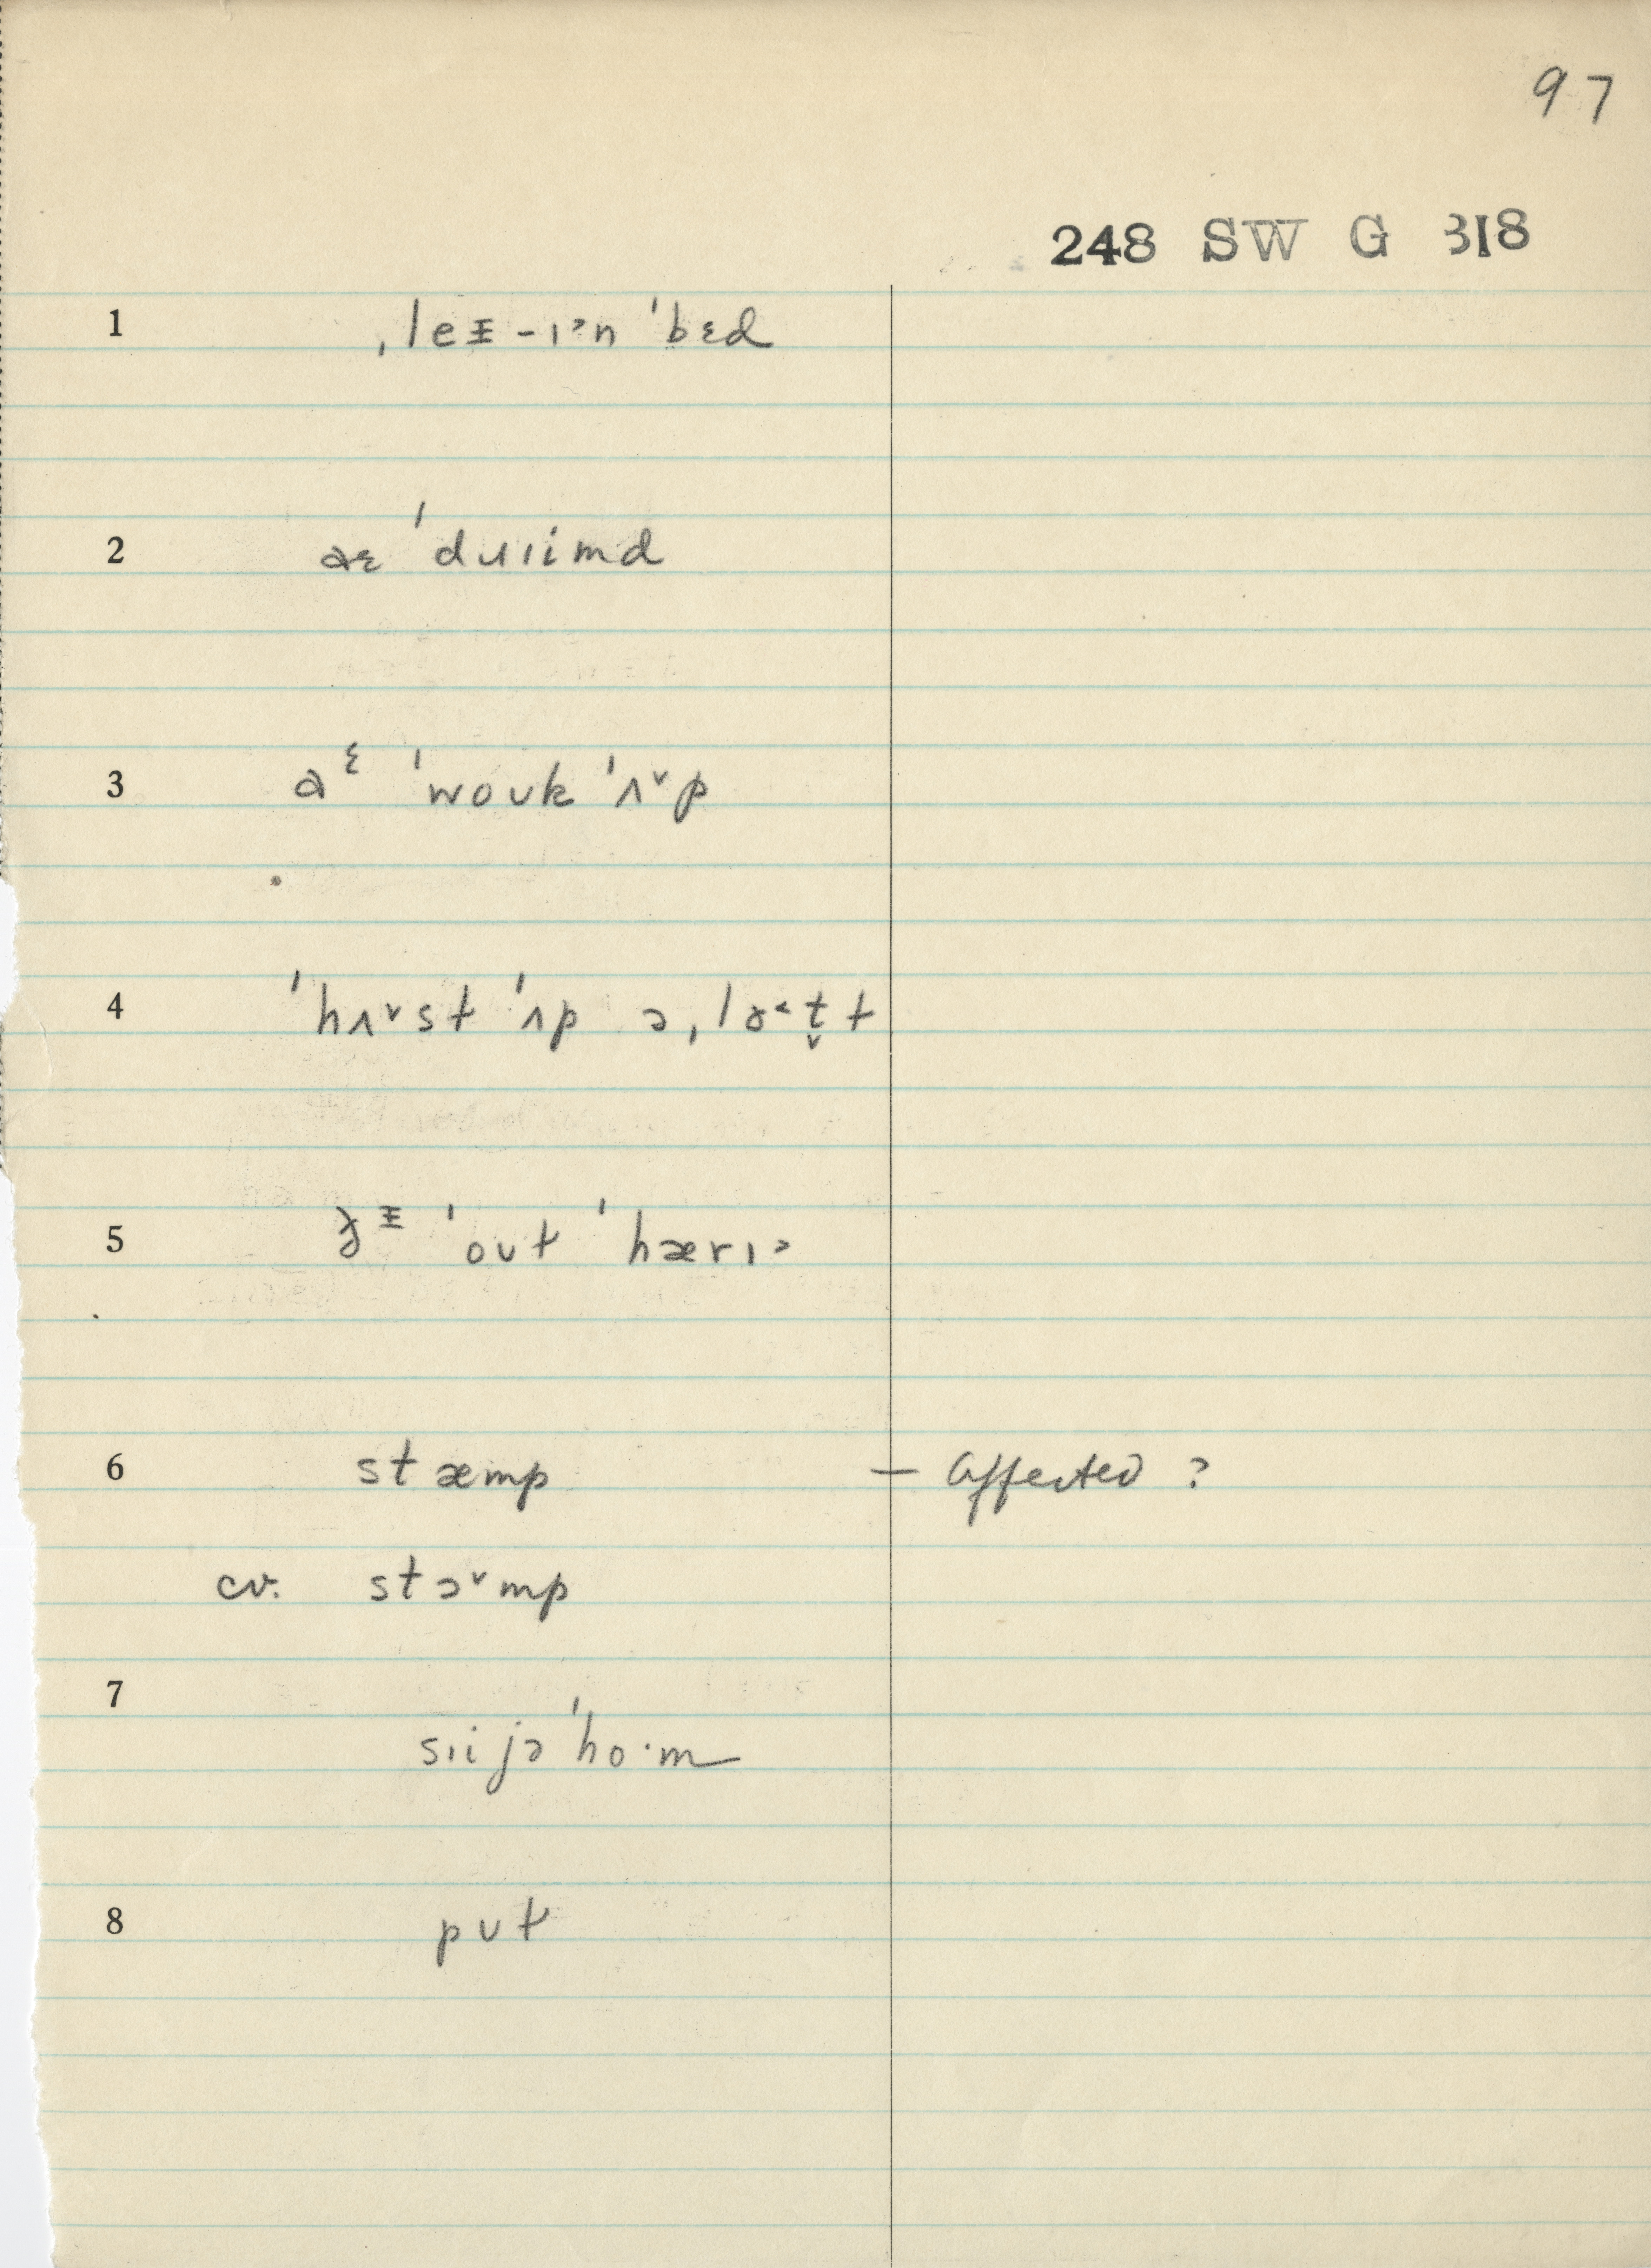 97
248 SW G 318
1 ˌleᵻ-ɪ˒n ˈbɛd
2 aɛ ˈdɹɪimd
3 aᵋ ˈwoʊk ˈʌ˅p
4 ˈhʌ˅st ˈʌp ə ˌlɑ˂t̬t
5 ˈoʊt ˈhærɪ˒
6 stæmp — affected ?
cv. stɔ˅mp
7
sɪi jə ˈho·m
8 pʊt